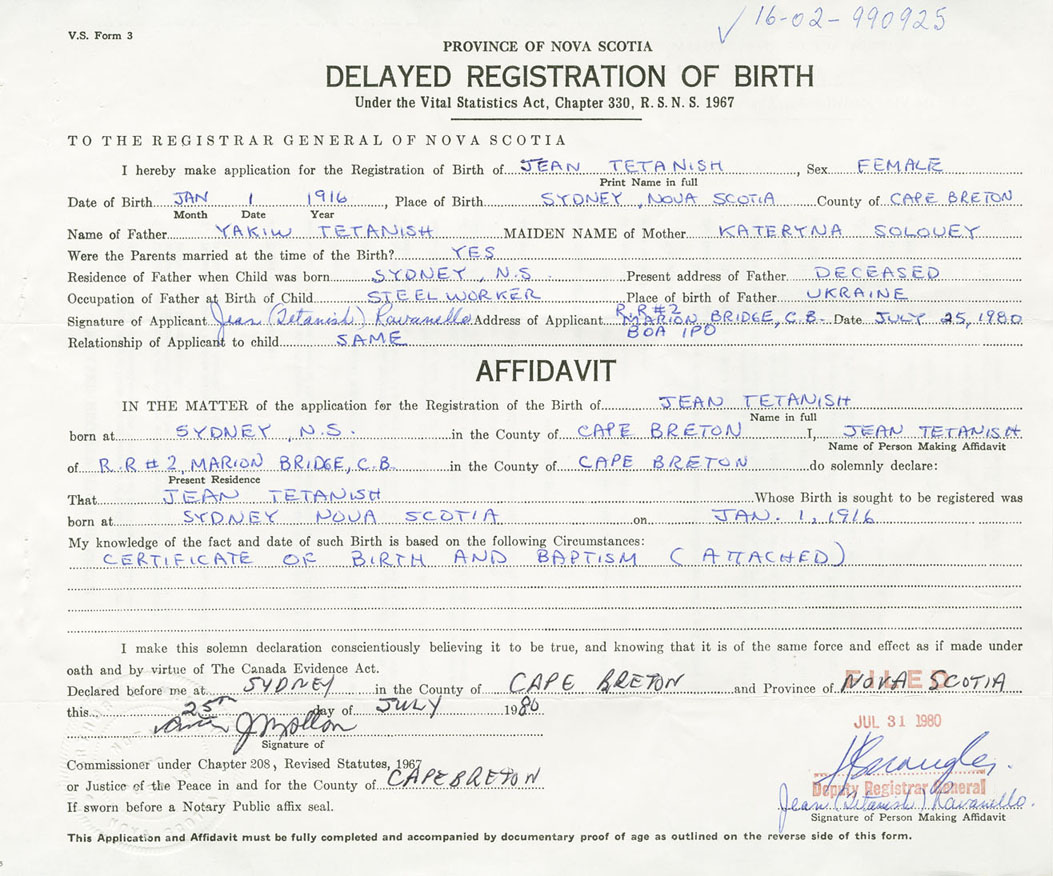 16-02-990925
V.S. Form 3
PROVINCE OF NOVA SCOTIA
DELAYED REGISTRATION OF BIRTH
Under the Vital Statistics Act, Chapter 330, R.S.N.S. 1967
TO THE REGISTRAR GENERAL OF NOVA SCOTIA
I hereby make application for the Registration of Birth of JEAN TETANISH, Sex FEMALE
Print Name in full
Date of Birth JAN 1 1916, Place of Birth SYDNEY, NOVA SCOTIA County of CAPE BRETON
Month Date Year
Name of Father YAKIW TETANISH MAIDEN NAME of Mother KATERYNA SOLOUEY
Were the Parents married at the time of the Birth? YES
Residence of Father when Child was born SYDNEY, N.S. Present address of Father DECEASED
Occupation of Father at Birth of Child STEELWORKER Place of birth of Father UKRAINE
R.R #2
Signature of Applicant Jean (Tetanish) Ravanello Address of Applicant MARION BRIDGE, C.B. Date JULY 25, 1980
BOA 1PO
Relationship of Applicant to child SAME
AFFIDAVIT
IN THE MATTER of the application for the Registration of the Birth of JEAN TETANISH
Name in full
born at SYDNEY, N.S. in the County of CAPE BRETON I, JEAN TETANISH
Name of Person Making Affidavit
of R.R # 2, MARION BRIDGE, C.B. in the County of CAPE BRETON do solemnly declare:
Present Residence
That JEAN TETANISH Whose Birth is sought to be registered was
born at SYDNEY NOVA SCOTIA on JAN. 1, 1916
My knowledge of the fact and date of such Birth is based on the following Circumstances:
CERTIFICATE OF BIRTH AND BAPTISM (ATTACHED)
I make this solemn declaration conscientiously believing it to be true, and knowing that it is of the same force and effect as if made under
oath and by virtue of The Canada Evidence Act.
Declared before me at SYDNEY in the County of CAPE BRETON and Province of NOVA SCOTIA
FILED
this 25th day of JULY 1980
JUL 31 1980
Signature of
Commissioner under Chapter 208, Revised Statutes, 1967
or Justice of the Peace in and for the County of CAPE BRETON
Deputy Registrar General
If sworn before a Notary Public affix seal.
Jean (Tetanish) Ravanello
Signature of Person Making Affidavit
This Application and Affidavit must be fully completed and accompanied by documentary proof of age as outlined on the reverse side of this form.